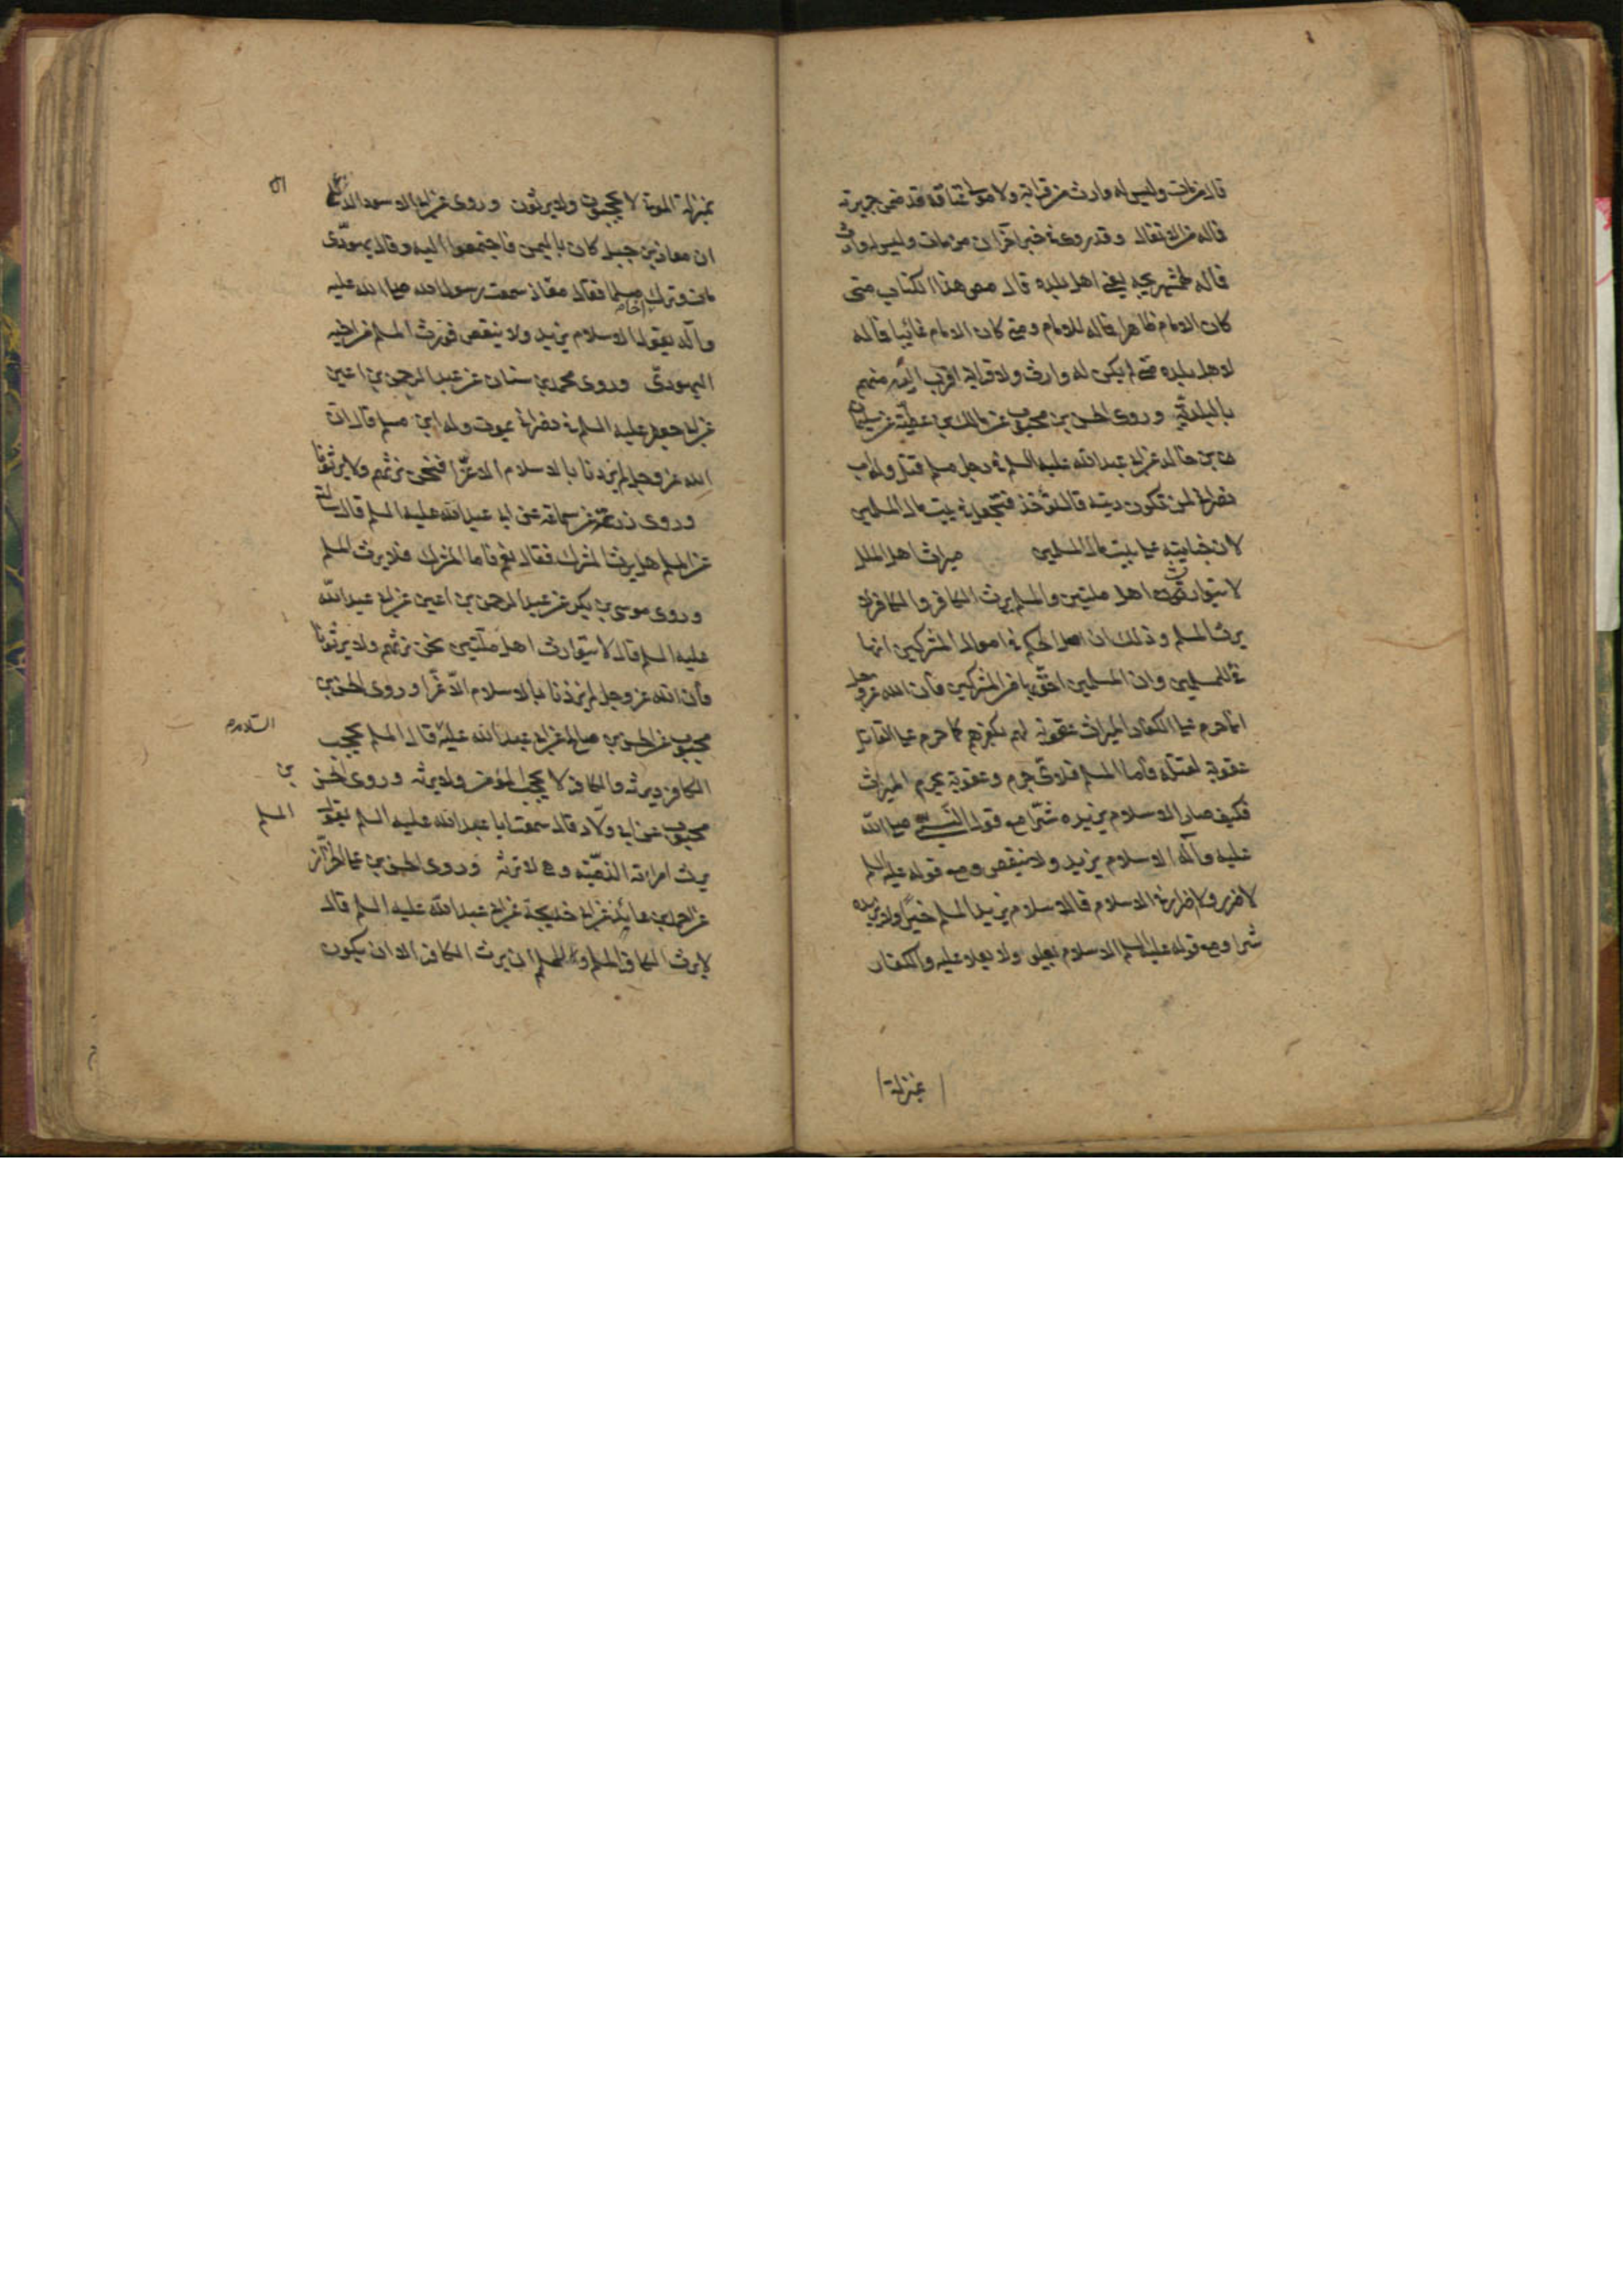 قال من مات وليس له وارث من قرابته ولا مولى عتاقه قد ضمن جريرته
فماله من الانفال وقد روى في خبر آخر ان من مات وليس له وارث
فماله لهمشهريجه يعني اهل بلده قال مص هذا الكتاب متى
كان الامام ظاهرا فماله للامام ومتى كان الامام غائبا فماله
لاهل بلده متى لم يكن له وارث ولا قرابة اقرب اليه منهم
بالبلدية وروى الحسن بن محبوب عن مالك بن عطية عن سليمان
بن خالد عن ابي عبد الله عليه السلم في رجل مسلم قتل وله اب
نصراني لمن تكون ديته قال تؤخذ فتجعل في بيت مال المسلمين
لان جنايته على بيت مال المسلمين ميراث اهل الملل
لا يتوارث اهل ملتين والمسلم يرث الكافر والكافر لا
يرث المسلم وذلك ان اصل الحكم في اموال المشركين انها
فئ للمسلمين وان المسلمين احق بها من المشركين وان الله عز وجل
انما حرم على الكفار الميراث عقوبة لهم بكفرهم كما حرم على القاتل
عقوبة لقتله فاما المسلم فلاي جرم وعقوبة يحرم الميراث
فكيف صار الاسلام يزيده شرا مع قول النبي صلى الله
عليه وآله الاسلام يزيد ولا ينقص ومع قوله عليه السلم
لا ضرر ولا اضرار في الاسلام فالاسلام يزيد المسلم خيرا ولا يزيده
شرا ومع قوله عليه السلم الاسلام يعلو ولا يعلا عليه والكفار
بمنزلة
بمنزلة الموتى لا يحجبون ولا يرثون وروى عن ابي الاسود الدئلي
ان معاذ بن جبل كان باليمن فاجتمعوا اليه وقالوا يهودى
مات وترك اخا مسلما فقال معاذ سمعت رسول الله صلى الله عليه
وآله يقول الاسلام يزيد ولا ينقص فورث المسلم من اخيه
اليهودى وروى محمد بن سنان عن عبد الرحمن بن اعين
عن ابي جعفر عليه السلم في نصراني يموت وله ابن مسلم قال ان
الله عز وجل لم يزدنا بالاسلام الا عزا فنحن نرثهم ولا يرثونا
وروى زرعة عن سماعة عن ابي عبد الله عليه السلم قال سالته
عن المسلم هل يرث المشرك فقال نعم فاما المشرك فلا يرث المسلم
وروى موسى بن بكر عن عبد الرحمن بن اعين عن ابي عبد الله
عليه السلم قال لا يتوارث اهل ملتين نحن نرثهم ولا يرثونا
فان الله عز وجل لم يزدنا بالاسلام الا عزا وروى الحسن بن
محبوب عن الحسن بن صالح عن ابي عبد الله عليه السلام قال المسلم يحجب
الكافر ويرثه والكافر لا يحجب المؤمن ولا يرثه وروى الحسن بن
محبوب عن ابي ولاد قال سمعت ابا عبد الله عليه السلم يقول المسلم
يرث امراته الذمية وهي لا ترثه وروى الحسن بن علي الخزاز
عن احمد بن عائذ عن ابي خديجة عن ابي عبد الله عليه السلم قال
لا يرث الكافر المسلم وللمسلم ان يرث الكافر الا ان يكون